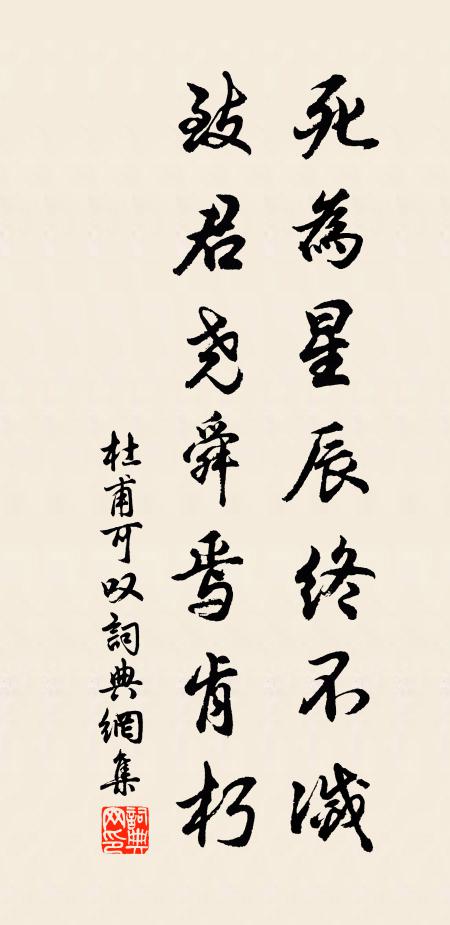 死為星辰終不滅
致君尧舜焉肯朽
杜甫可叹詞典網集
詞典網印